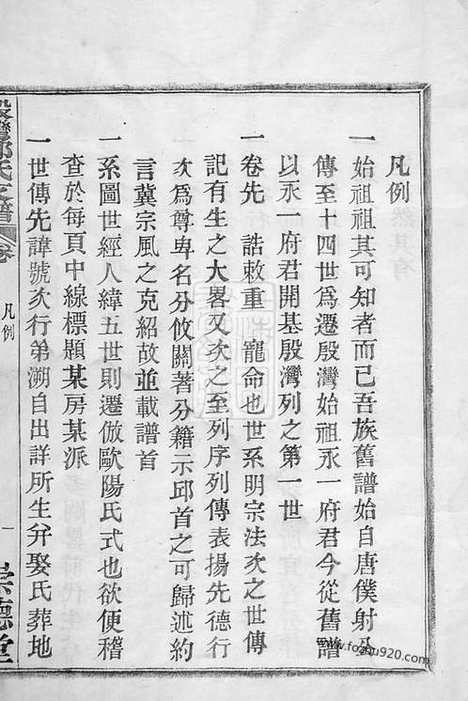 凡例
一始祖祖其可知者而已吾族舊譜始自唐僕射及
傳至十四世爲遷殷灣始祖永一府君今從舊譜
以永一府君開基殷灣列之第一世
一卷先 誥敕重 寵命也世系明宗法次之世傳
記有生之大畧又次之至列序列傳表揚先德行
次爲尊卑名分攸關著分籍示邱首之可歸述約
言冀宗風之克紹故並載譜首
一系圖世經人緯五世則遷倣歐陽氏式也欲便稽
查於每頁中線標題某房某派
一世傳先諱號次行弟溯自出詳所生弁娶氏葬地
殷灣鄭氏支譜 卷
凡例
一
崇德堂
www.fozhu920.com